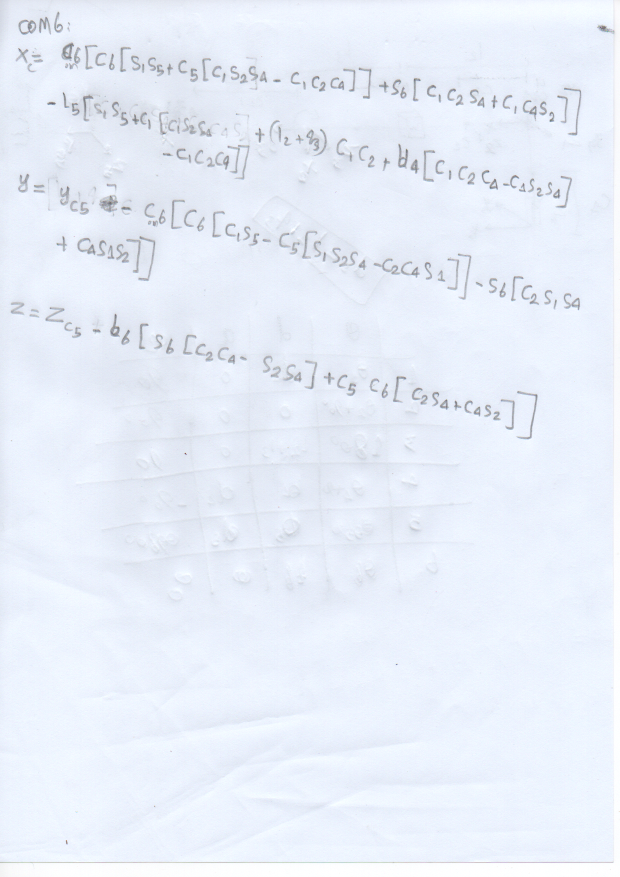 COM6:
X_C = a6[C6[S1S5+C5[C1S2S4 - C1C2C4]] + S6[C1C2S4+C1C4S2]]
- L5[S1S5+C1[C1S2S4 + (l2+q3) C1C2 + d4[C1C2C4-C1S2S4]
- C1C2C4]]
y = y_C5 - C6[C6[C1S5 - C5[S1S2S4 - C2C4S1]] - S6[C2S1S4
+ C4S1S2]]
Z = Z_C5 - b6[S6[C2C4 - S2S4] + C5 C6[C2S4+C4S2]]